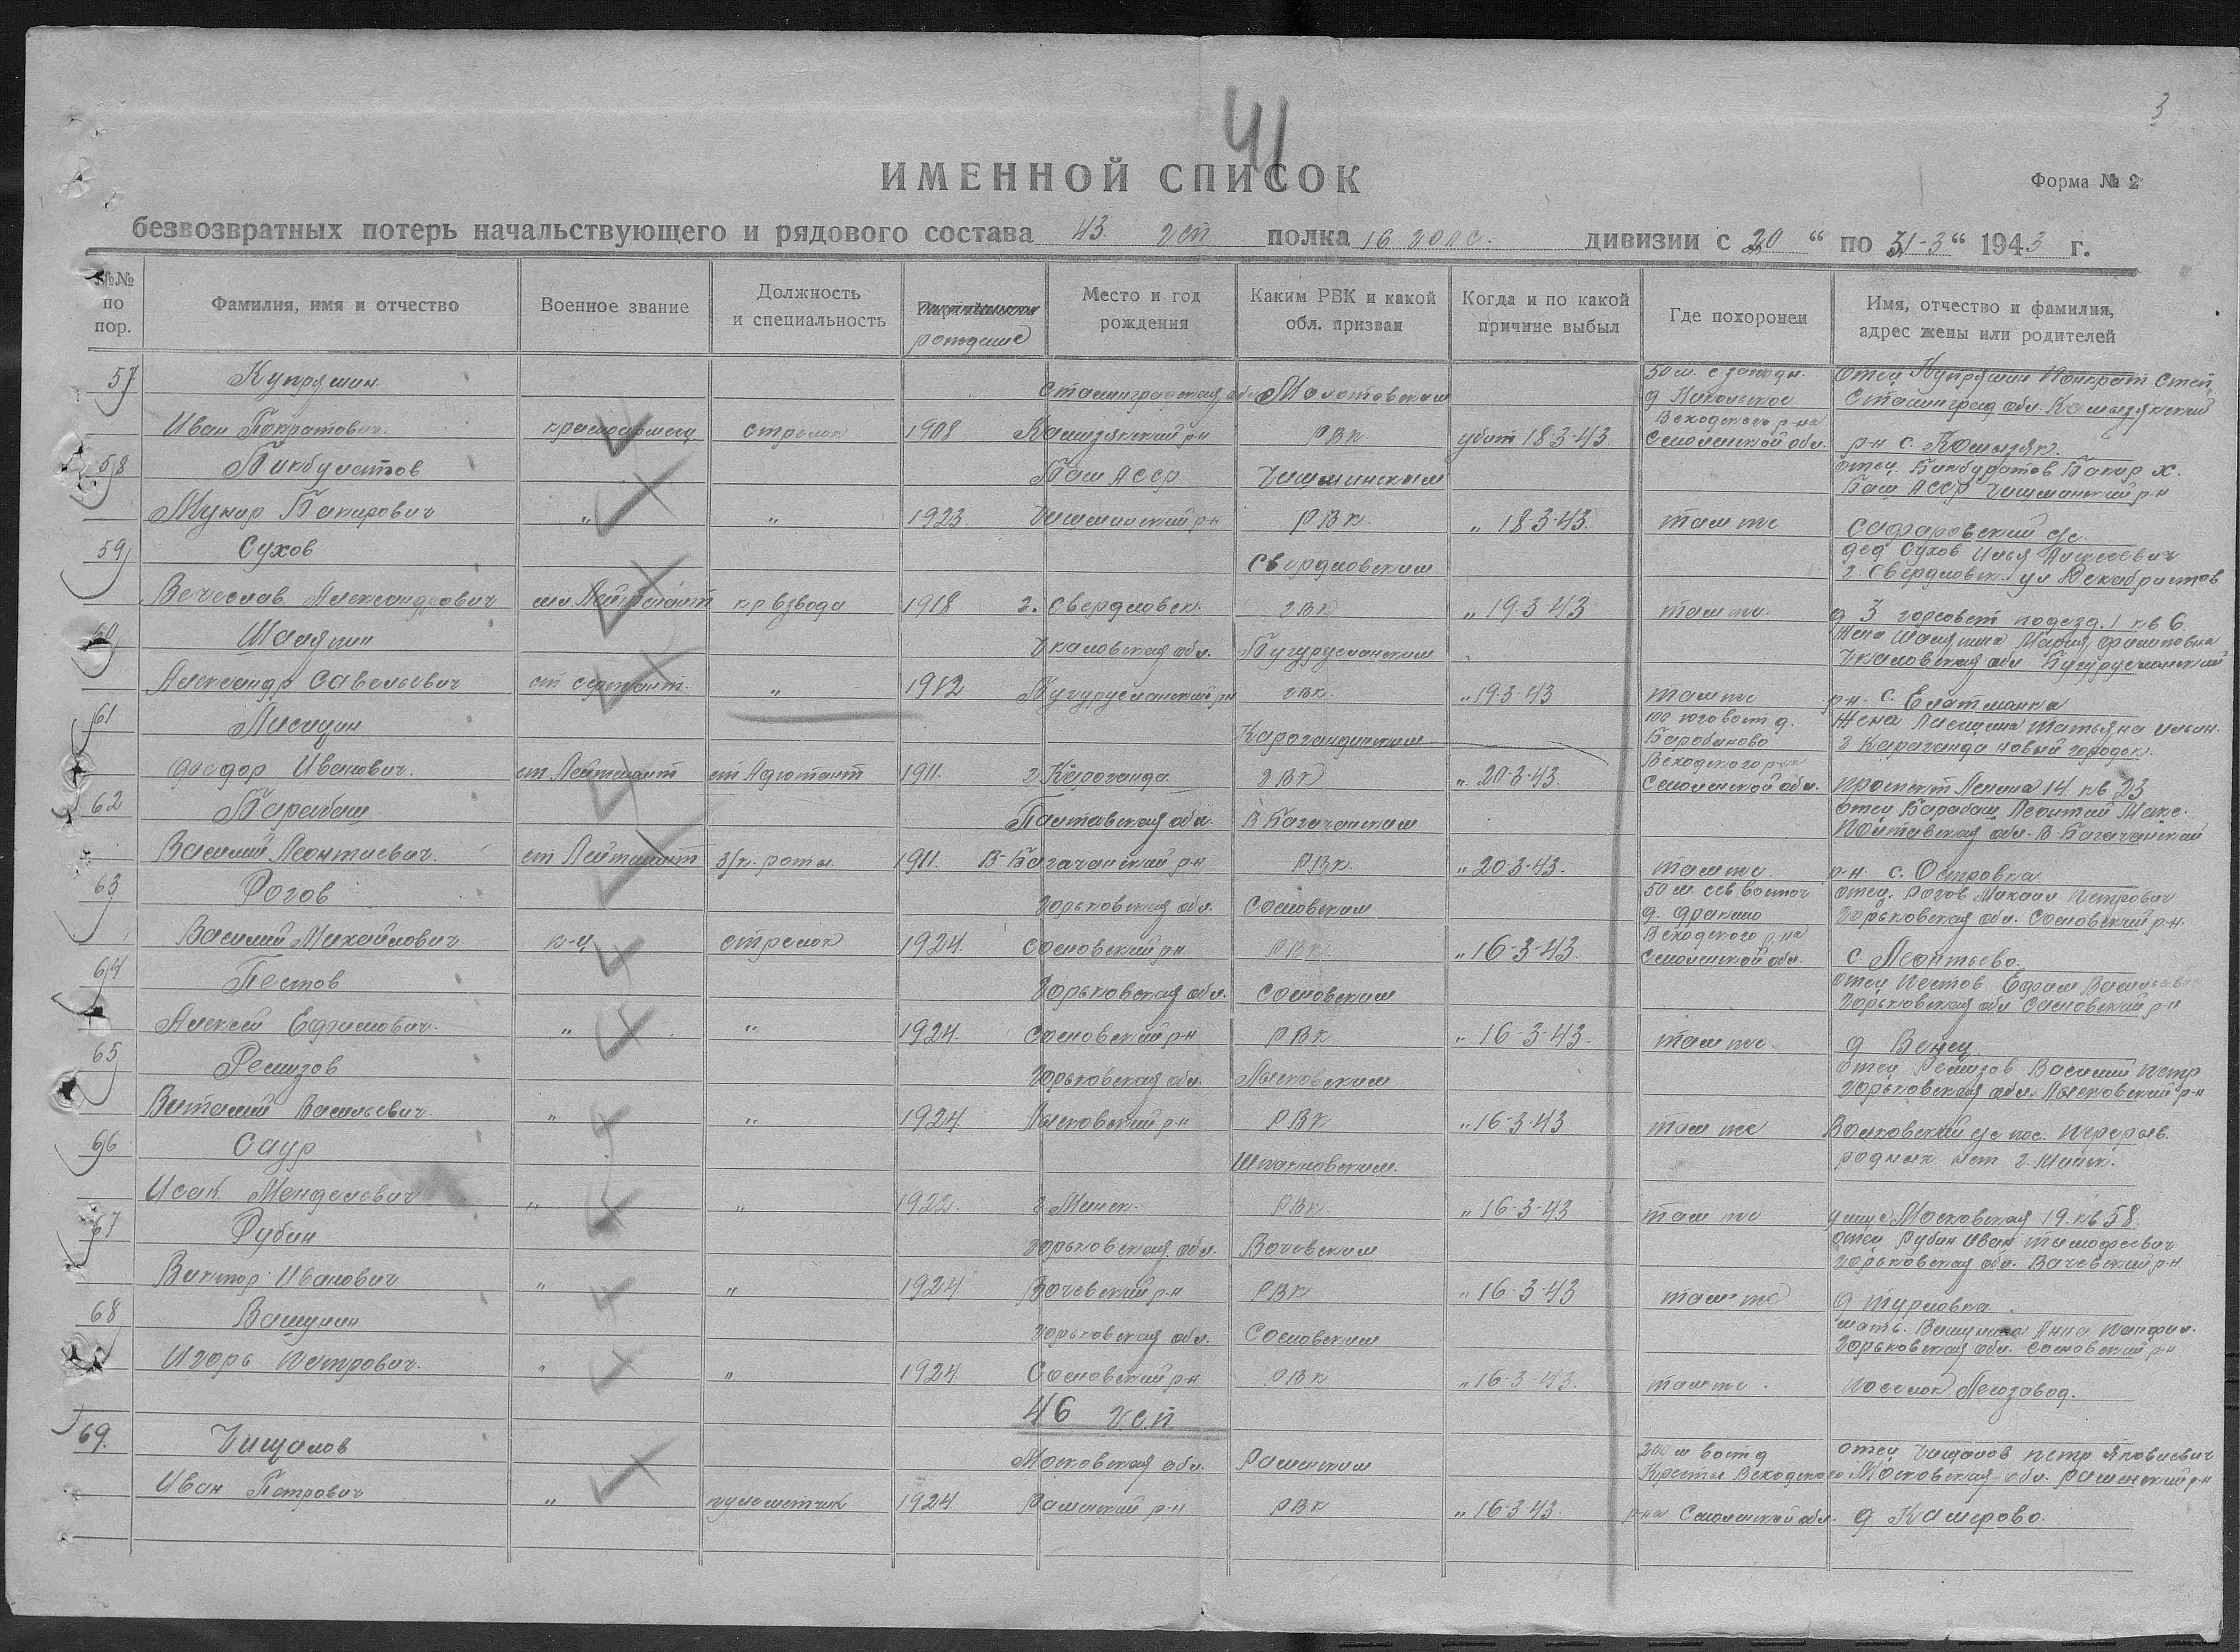 41
3
ИМЕННОЙ СПИСОК
Форма № 2
безвозвратных потерь начальствующего и рядового состава 43 гсп полка 16 дивизии с 20 “ по 31-3 “ 1943 г.
№№ по пор.
Фамилия, имя и отчество
Военное звание
Должность и специальность
рождение
Место и год рождения
Каким РВК и какой обл. призван
Когда и по какой причине выбыл
Где похоронен
Имя, отчество и фамилия, адрес жены или родителей
57 Купряшин Сталинградская обл Молотовским 50 м. с. западн. отец Купряшин Панкрат Степ.
д Никольское Сталинград обл. Камызякский
Иван Пократович. красноармеец стрелок 1908 Камызякский р-н РВК. убит 18-3-43 Всходского р-на Смоленской обл. р-н с. Камызяк.
58 Бикбулатов Баш АССР Чишминским отец Бикбулатов Бакир Х.
Баш АССР Чишминский р-н
Мунир Бакирович „ „ 1923. Чишминский р-н РВК. „ 18-3-43. там же Сафаровский с/с.
59 Сухов Свердловским дед Сухов Илья Алексеевич
г. Свердловск. ул Декабристов
Вечеслав Александрович мл Лейтенант к-р взвода 1918 г. Свердловск. ГВК „ 19-3-43 там же. д 3 горсовет подезд. 1 кв 6.
60 Шаляпин Чкаловская обл. Бугурусланским Жена Шаляпина Мария Филиповна
Чкаловская обл Бугурусланский
Александр Савельевич ст сержант. „ 1912 Бугурусланский р-н ГВК. „ 19-3-43 там же р-н. с. Елатманка
61 Лисицин Карагандинским 100 юговост д. Жена Лисицина Татьяна
Барабаново г Караганда новый городок.
Федор Иванович. ст Лейтенант ст Адютант 1911. г. Караганда ГВК „ 20-3-43. Всходского р-на Смоленской обл. проспект Ленина 14. кв 23
62 Барабаш Полтавская обл. В Багачанским отец Барабаш Леонтий Макс.
Полтавская обл. В-Багачанский
Василий Леонтиевич. ст Лейтенант з/к. роты 1911. В-Багачанский р-н РВК. „ 20-3-43. там же. р-н. с. Островка.
63 Рогов Горьковская обл. Сосновским 50 м. сев восточ отец. Рогов Михаил Петрович
д. Фракино Горьковская обл. Сосновский р-н.
Василий Михайлович к-ц стрелок 1924. Сосновский р-н РВК. „ 16-3-43. Всходского р-на Смоленской обл. с. Леонтьево.
64 Пестов Горьковская обл. Сосновским отец Пестов Ефим
Горьковская обл Сосновский р-н
Алексей Ефимович. „ „ 1924. Сосновский р-н РВК „ 16-3-43. там же. д Венец.
65 Ремизов Горьковская обл. Лысковским отец Ремизов Василий Петр
Горьковская обл. Лысковский р-н
Виталий Васильевич. „ „ 1924. Лысковский р-н РВК „ 16-3-43 там же с/с пос.
66 Саур родных нет г. Минск.
Исак Менделевич „ „ 1922. г. Минск. РВК. „ 16-3-43 там же улица Московская 19. кв 58.
67 Рубин Горьковская обл. Вачевским отец Рубин Иван Тимофеевич
Горьковская обл. Вачевский р-н
Виктор Иванович „ „ 1924 Вачевский р-н РВК „ 16-3-43 там же
68 Вашунин Горьковская обл. Сосновским мать. Вашунина Анна
Горьковская обл. Сосновский р-н
Игорь Петрович. „ „ 1924 Сосновский р-н РВК „ 16-3-43. там же. поселок Лесозавод.
46 гсп
69. Чищалов Московская обл. Раменским 200 м вост д отец Чищалов Петр Яковлевич
Кресты Всходского Московская обл. Раменский р-н
Иван Петрович „ пулеметчик 1924 Раменский р-н РВК „ 16-3-43. р-на Смоленской обл. д